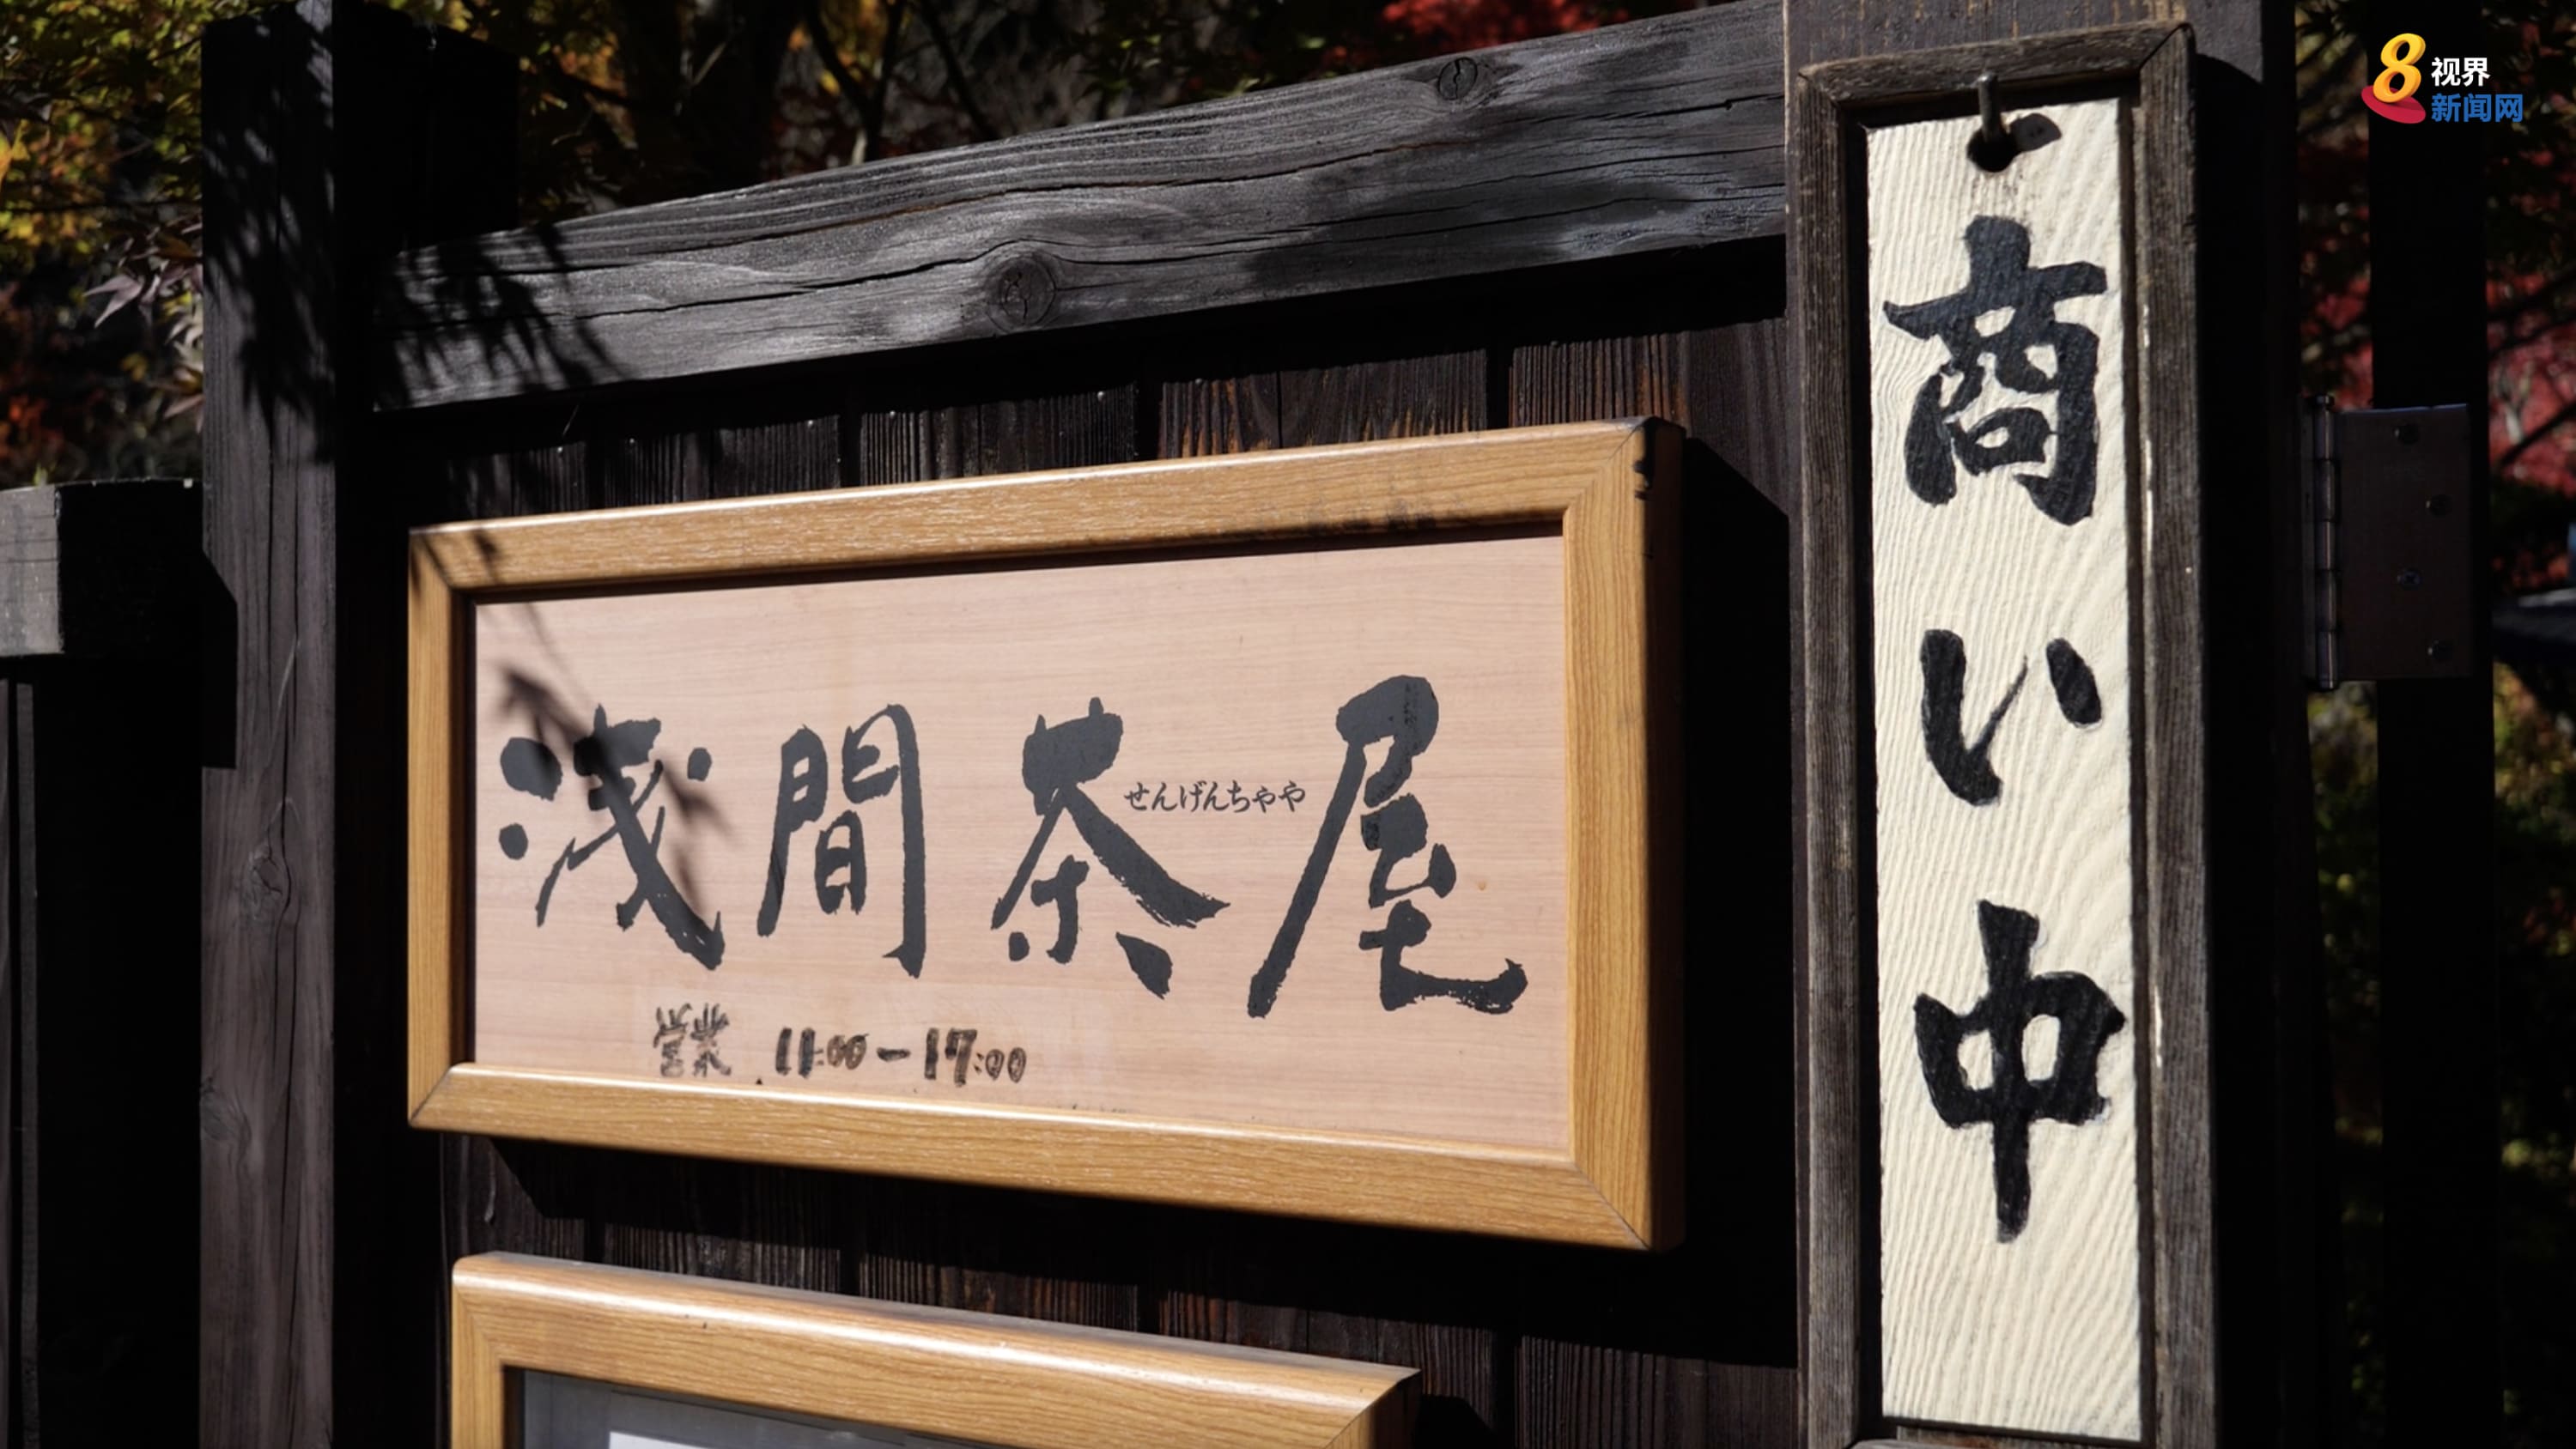 8視界
新闻网
浅間茶屋
せんげんちゃや
営業 11:00-17:00
商い中